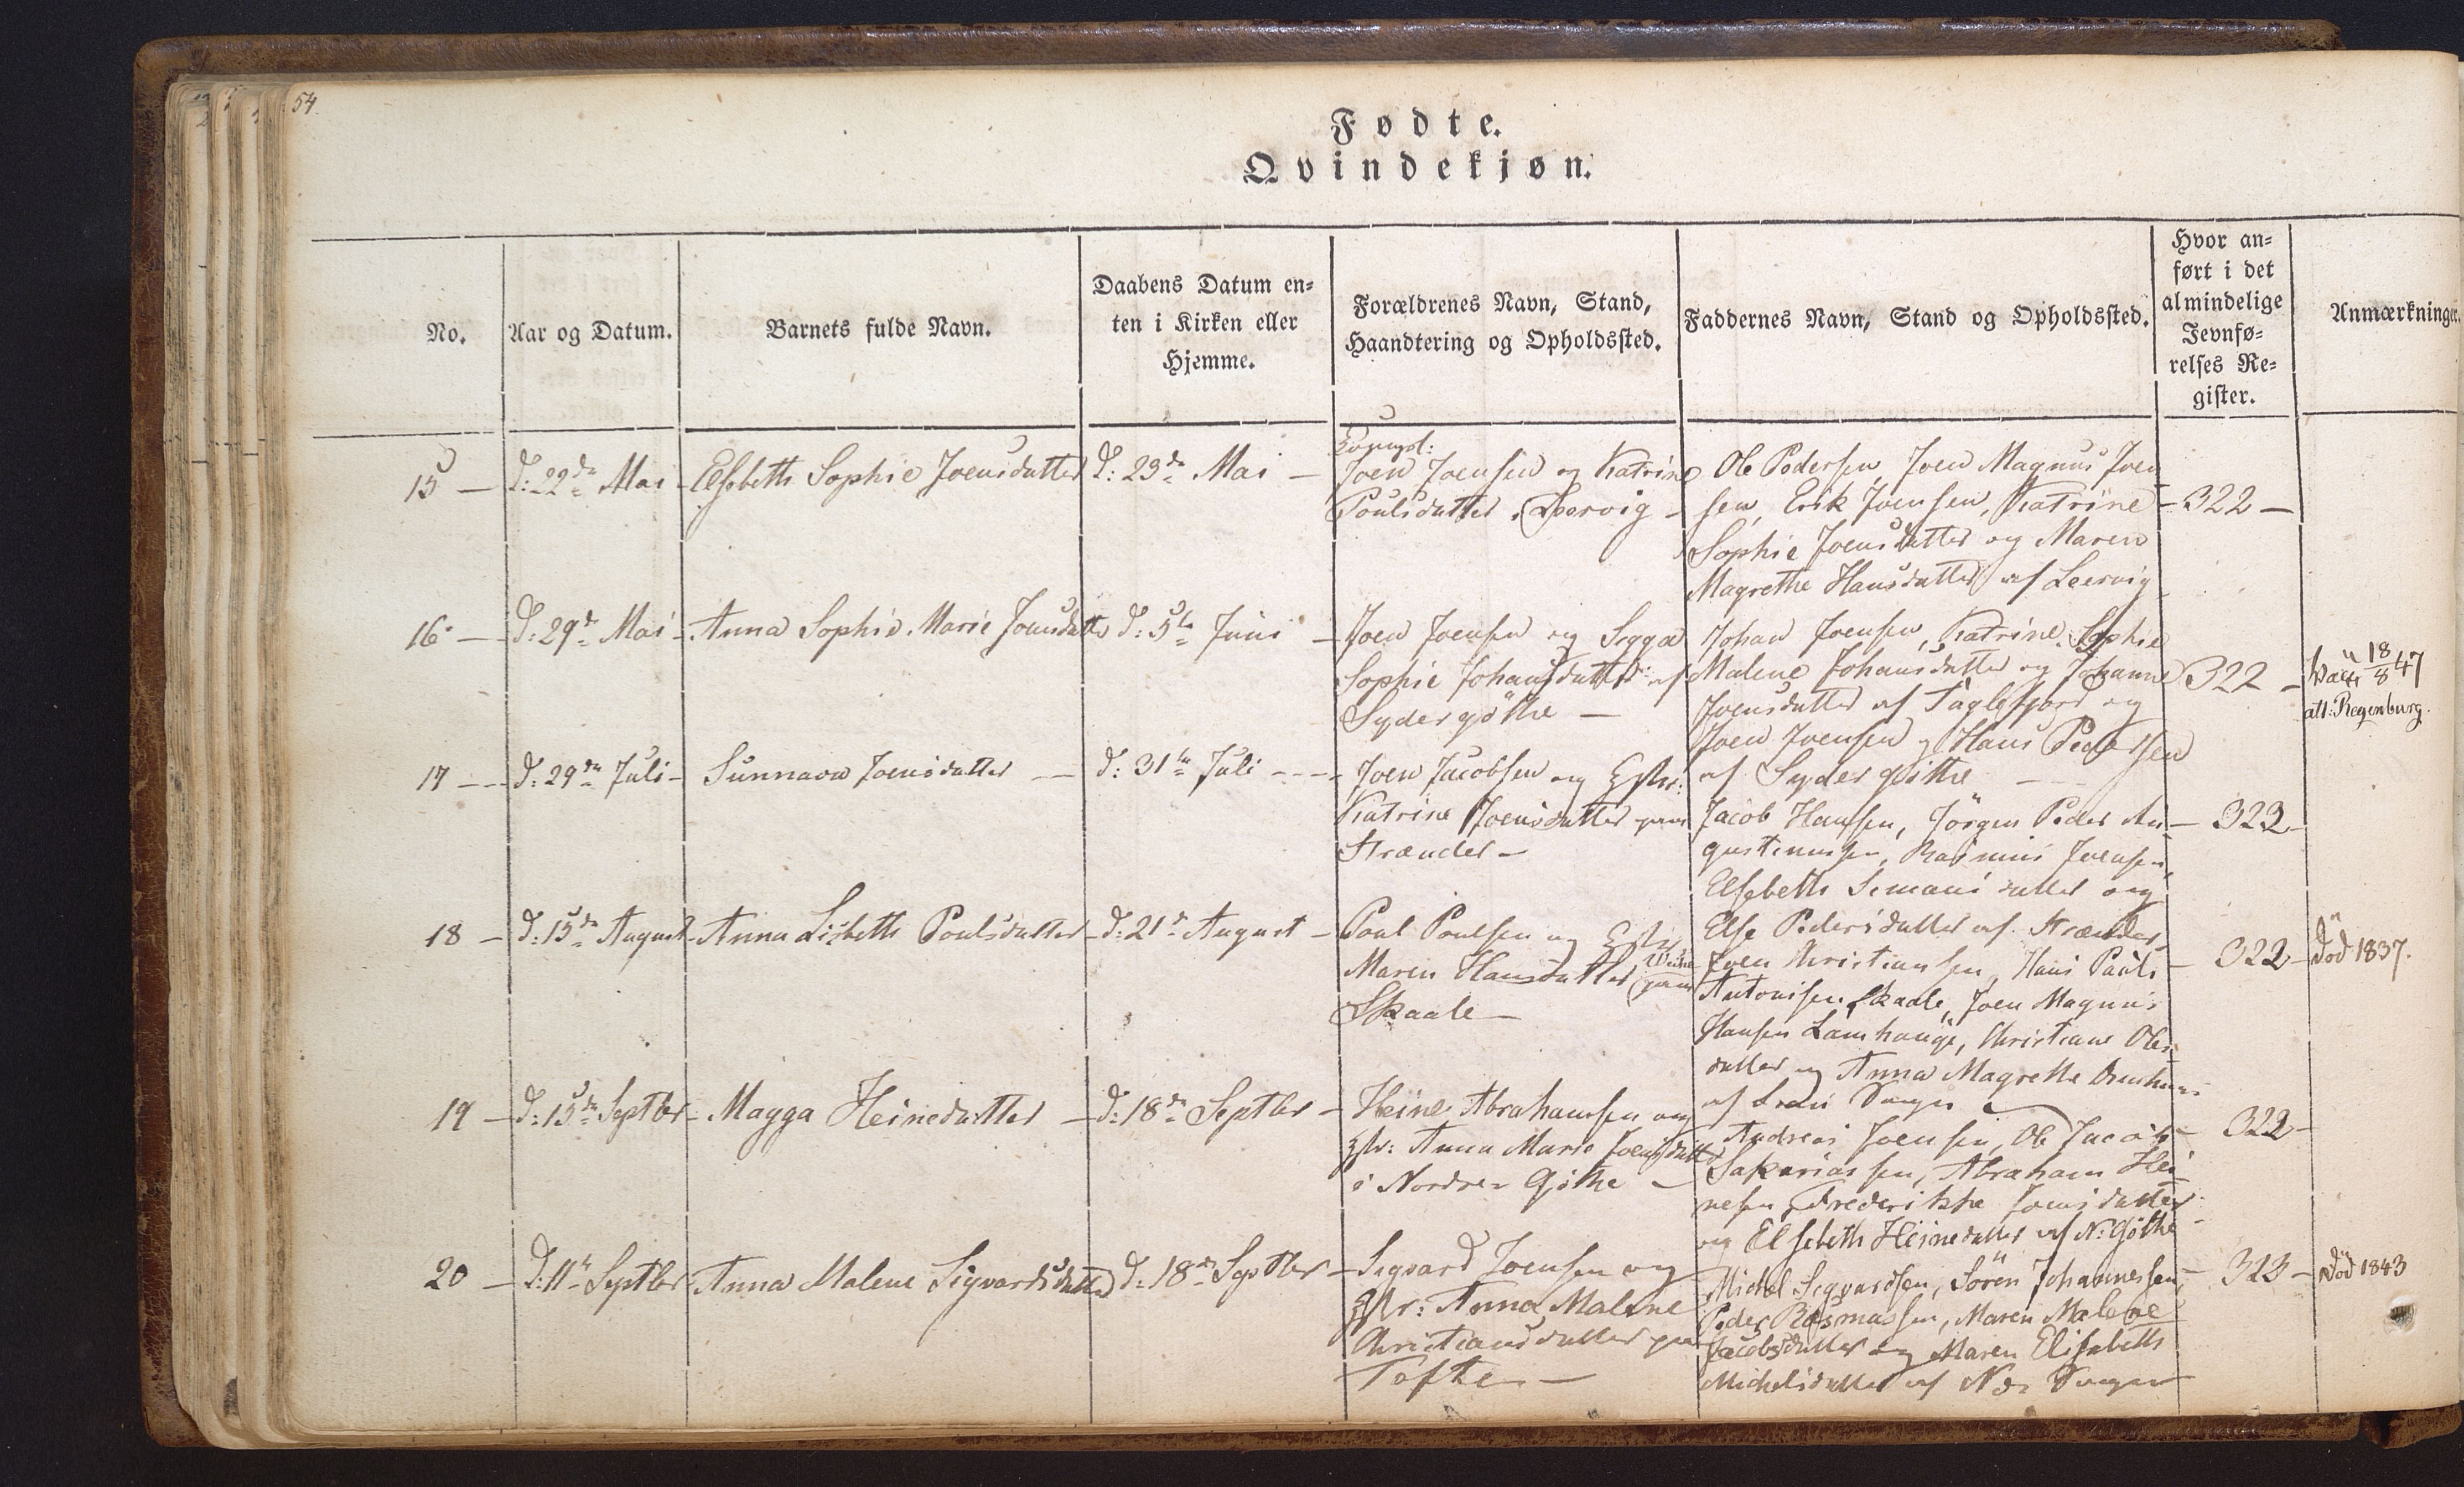 54.
Fødte.
Qvindekjøn.
No.
Aar og Datum.
Barnets fulde Navn.
Daabens Datum en-
ten i Kirken eller
Hjemme.
Forældrenes Navn, Stand,
Haandtering og Opholdssted.
Faddernes Navn, Stand og Opholdssted.
Hvor an-
ført i det
almindelige
Jevnfø-
relses Re-
gister.
Anmærkninger.
15 —
d: 22de Mai -
Elsebeth Sophie Joensdatter
d: 23de Mai —
Joen Joensen og Katrine
Poulsdatter, Leervig -
Ole Pedersen, Joen Magnus Joen
sen, Erik Joensen, Katrine
Sophie Joensdatter og Maren
Magrethe Hansdatter af Leervig
322 —
16 —
d: 29de Mai -
Anna Sophie Marie Joensdatter
d: 5te Juni —
Joen Joensen og Sigga
Sophie Johansdatter af
Sydergöthe —
Johan Joensen, Katrine Sophie
Malene Johansdatter og Johanne
Joensdatter af Fuglefjord og
Joen Joensen og Hans Pedersen
af Sydergöthe —
322 —
18/8 47
att: Regenburg.
17 --
d: 29de Juli -
Sunnava Joensdatter --
d: 31te Juli ---
Joen Jacobsen og Hstr:
Katrine Joensdatter paa
Strænder —
Jacob Hansen, Jörgen Peder Au-
gustinussen, Rasmus Joensen,
Elsebeth Simonsdatter og
Else Pedersdatter af Strænder,
322 -
18 —
d: 15de August -
Anna Lisbeth Poulsdatter -
d: 21de August —
Poul Poulsen og Hstr
Maren Hansdatter paa
Skaale —
Joen Christiansen, Hans Pauli
Antonisen, Skaale, Joen Magnus
Hansen Lamhauge, Christiane Ole-
datter og Anna Magrethe
af
322 -
Död 1837.
19 —
d: 15de Septbr -
Magga Heinedatter —
d: 18de Septbr —
Heine Abrahamsen og
Hstr: Anna Marie Joensdatter
i Nordre Göthe —
Andreas Joensen, Ole Jacob
Sakariassen, Abraham Hei
nesen, Frederikke Joensdatter
og Elsebeth Heinedatter af N: Göthe
322 -
20 —
d: 11te Septbr
Anna Malene Sigvardsdatter
d: 18de Septbr —
Sigvard Joensen og
Hstr: Anna Malene
Christiansdatter paa
Tofte —
Michel Sigvardsen, Sören Johannesen,
Peder Rasmussen, Maren Malene
Jacobsdatter og Maren Elisabeth
Michelsdatter af
323 —
Död 1843